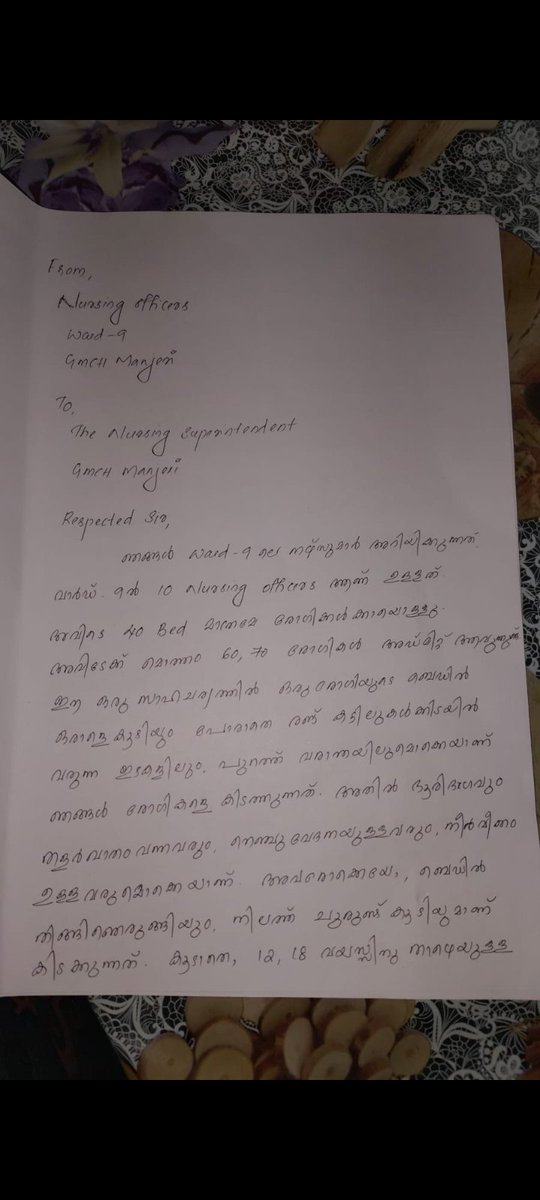 From,
Nursing officers
Ward-9
GMCH Manjeri
To,
The Nursing Superintendent
GMCH Manjeri
Respected Sir,
ഞങ്ങൾ Ward-9 ലെ നഴ്സുമാർ അറിയിക്കുന്നത്.
വാർഡ്. 9ൽ 10 Nursing officers ആണ് ഉള്ളത്.
അവിടെ 40 Bed മാത്രമേ രോഗികൾക്കായൊള്ളു.
അവിടേക്ക് മൊത്തം 60, 70 രോഗികൾ അഡ്മിറ്റ് ആവുന്നുണ്ട്.
ഈ ഒരു സാഹചര്യത്തിൽ ഒരു രോഗിയുടെ ബെഡിൽ
ഒരാളെ കൂടിയും പോരാതെ രണ്ട് കട്ടിലുകൾക്കിടയിൽ
വരുന്ന ഇടകളിലും, പുറത്ത് വരാന്തയിലുമൊക്കെയാണ്
ഞങ്ങൾ രോഗികളെ കിടത്തുന്നത്. അതിൽ ഭൂരിഭാഗവും
തളർവാതം വന്നവരും, നെഞ്ചുവേദനയുള്ളവരും, നീർവീക്കം
ഉള്ളവരുമൊക്കെയാണ്. അവരൊക്കെയോ, ബെഡിൽ
തിങ്ങിഞെരുങ്ങിയും, നിലത്ത് ചുരുണ്ട് കൂടിയുമാണ്
കിടക്കുന്നത്. കൂടാതെ, 12, 18 വയസ്സിനു താഴെയുള്ള